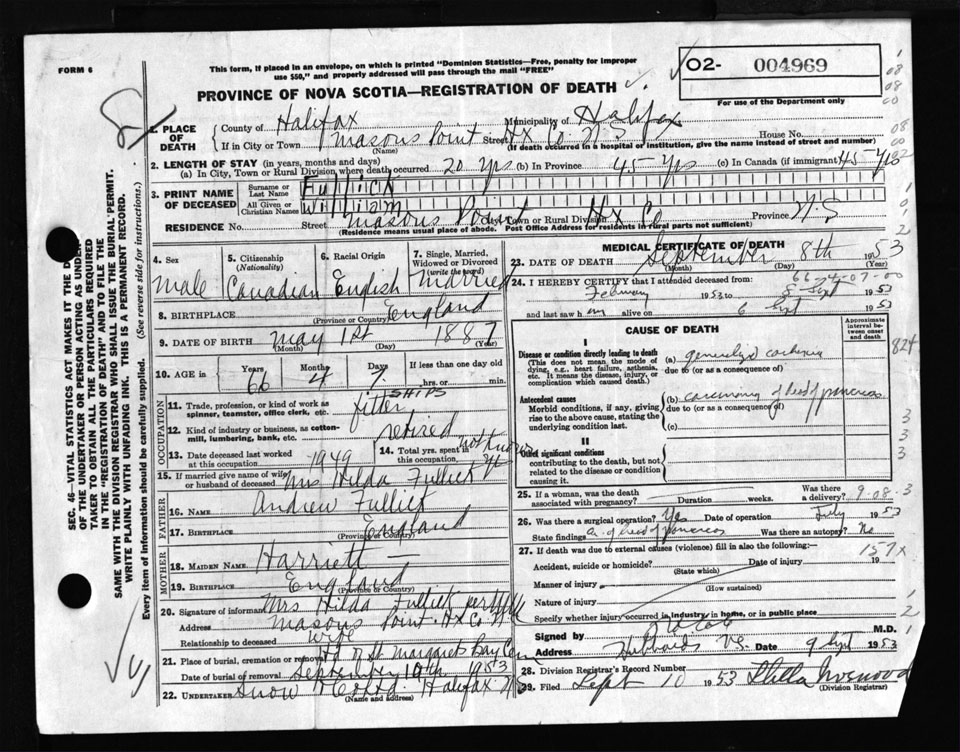 FORM 6
This form, if placed in an envelope, on which is printed "Dominion Statistics—Free, penalty for improper
use $50," and properly addressed will pass through the mail "FREE"
02- 004969
For use of the Department only
PROVINCE OF NOVA SCOTIA—REGISTRATION OF DEATH
1. PLACE OF DEATH County of Halifax Municipality of Halifax
If in City or Town Masons Point (Name) Street Hx Co N S House No.
(If death occurred in a hospital or institution, give the name instead of street and number)
2. LENGTH OF STAY (in years, months and days)
(a) In City, Town or Rural Division where death occurred 20 yrs (b) In Province 45 yrs (c) In Canada (if immigrant) 45 yrs
3. PRINT NAME OF DECEASED Surname or Last Name Fullick
All Given or Christian Names William
RESIDENCE No. Street Masons Point City, Town or Rural Division Hx Co Province N.S
(Residence means usual place of abode. Post Office Address for residents in rural parts not sufficient)
4. Sex Male
5. Citizenship (Nationality) Canadian
6. Racial Origin English
7. Single, Married, Widowed or Divorced (write the word) Married
8. BIRTHPLACE England
(Province or Country)
9. DATE OF BIRTH May 1st 1887
(Month) (Day) (Year)
10. AGE in Years 66 Months 4 Days 7 If less than one day old hrs. or min.
OCCUPATION
11. Trade, profession, or kind of work as spinner, teamster, office clerk, etc. SHIPS fitter
12. Kind of industry or business, as cotton-mill, lumbering, bank, etc. retired
13. Date deceased last worked at this occupation 1949
14. Total yrs. spent in this occupation not known
15. If married give name of wife or husband of deceased Mrs Hilda Fullick
FATHER
16. NAME Andrew Fullick
17. BIRTHPLACE England
(Province or Country)
MOTHER
18. MAIDEN NAME Harriett —
19. BIRTHPLACE England
20. Signature of informant Mrs Hilda Fullick per
Address Masons Point Hx Co N.S
Relationship to deceased wife
21. Place of burial, cremation or removal Hd of St Margarets Bay Cem
Date of burial or removal September 10th 1953
22. Undertaker Snow & Co Ltd. Halifax N.S.
(Name and address)
MEDICAL CERTIFICATE OF DEATH
23. DATE OF DEATH September 8th 1953
(Month) (Day) (Year)
24. I HEREBY CERTIFY that I attended deceased from:
February 1953 to 8 Sept 1953
and last saw h im alive on 6 Sept 1953
CAUSE OF DEATH
Approximate interval between onset and death
I
Disease or condition directly leading to death
(This does not mean the mode of dying, e.g., heart failure, asthenia, etc. It means the disease, injury, or complication which caused death.)
(a) generalized cachexia
due to (or as a consequence of)
Antecedent causes
Morbid conditions, if any, giving rise to the above cause, stating the underlying condition last.
(b) carcinoma of head of pancreas
due to (or as a consequence of)
(c)
II
Other significant conditions
contributing to the death, but not related to the disease or condition causing it.
25. If a woman, was the death associated with pregnancy? Duration weeks. Was there a delivery?
26. Was there a surgical operation? Yes Date of operation July 1953
State findings Ca. of head of pancreas Was there an autopsy? No
27. If death was due to external causes (violence) fill in also the following:—
Accident, suicide or homicide? (State which) Date of injury 19
Manner of injury (How sustained)
Nature of injury
Specify whether injury occurred in industry, in home, or in public place
Signed by M.D.
Address Hubbards N.S. Date 9 Sept 1953
28. Division Registrar's Record Number
29. Filed Sept 10 1953 Stella
(Division Registrar)
SEC. 46—VITAL STATISTICS ACT MAKES IT THE
OF THE UNDERTAKER OR PERSON ACTING AS UNDER-
TAKER TO OBTAIN ALL THE PARTICULARS REQUIRED
IN THE "REGISTRATION OF DEATH" AND TO FILE THE
SAME WITH THE DIVISION REGISTRAR WHO SHALL ISSUE THE BURIAL PERMIT.
WRITE PLAINLY WITH UNFADING INK. THIS IS A PERMANENT RECORD.
Every item of information should be carefully supplied. (See reverse side for instructions.)
824
9-08-3
157x